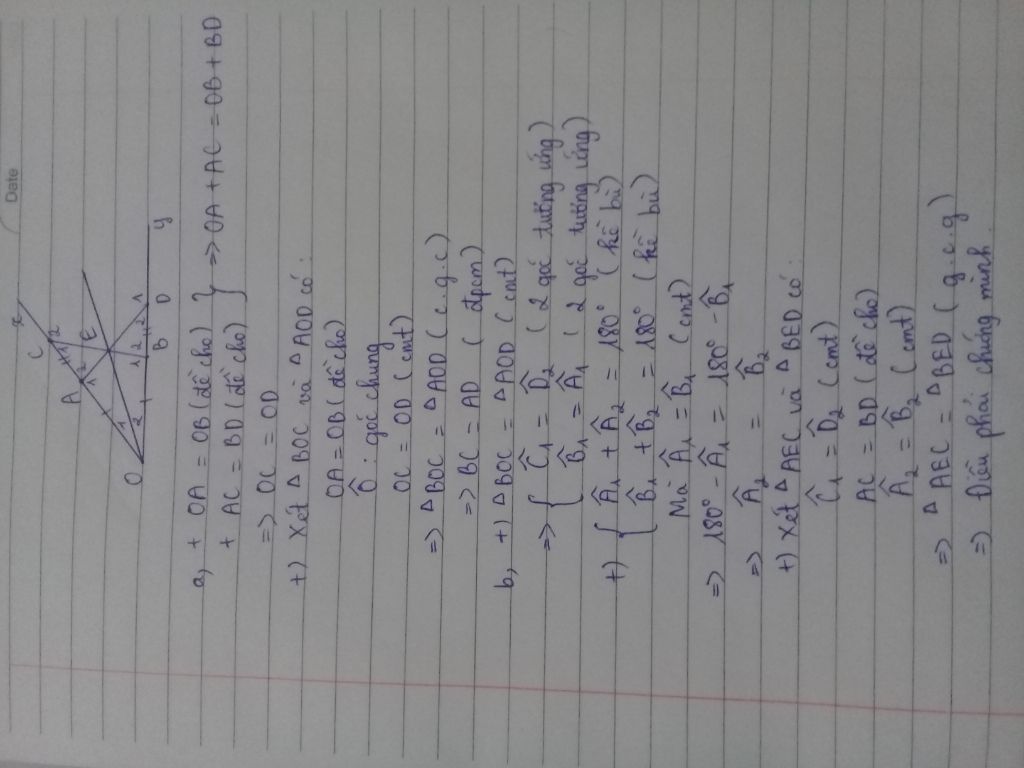 Date
x
C
A
E
O
B
D
y
a, + OA = OB (đề cho)
+ AC = BD (đề cho) } => OA + AC = OB + BD
=> OC = OD
+) Xét △BOC và △AOD có:
OA = OB (đề cho)
Ô : góc chung
OC = OD (cmt)
=> △BOC = △AOD (c.g.c)
=> BC = AD (đpcm)
b, +) △BOC = △AOD (cmt)
=> { Ĉ₁ = D̂₂ (2 góc tương ứng)
B̂₁ = Â₁ (2 góc tương ứng)
+) { Â₁ + Â₂ = 180° (kề bù)
B̂₁ + B̂₂ = 180° (kề bù)
Mà Â₁ = B̂₁ (cmt)
=> 180° - Â₁ = 180° - B̂₁
=> Â₂ = B̂₂
+) Xét △AEC và △BED có:
Ĉ₁ = D̂₂ (cmt)
AC = BD (đề cho)
Â₂ = B̂₂ (cmt)
=> △AEC = △BED (g.c.g)
=> Điều phải chứng minh.